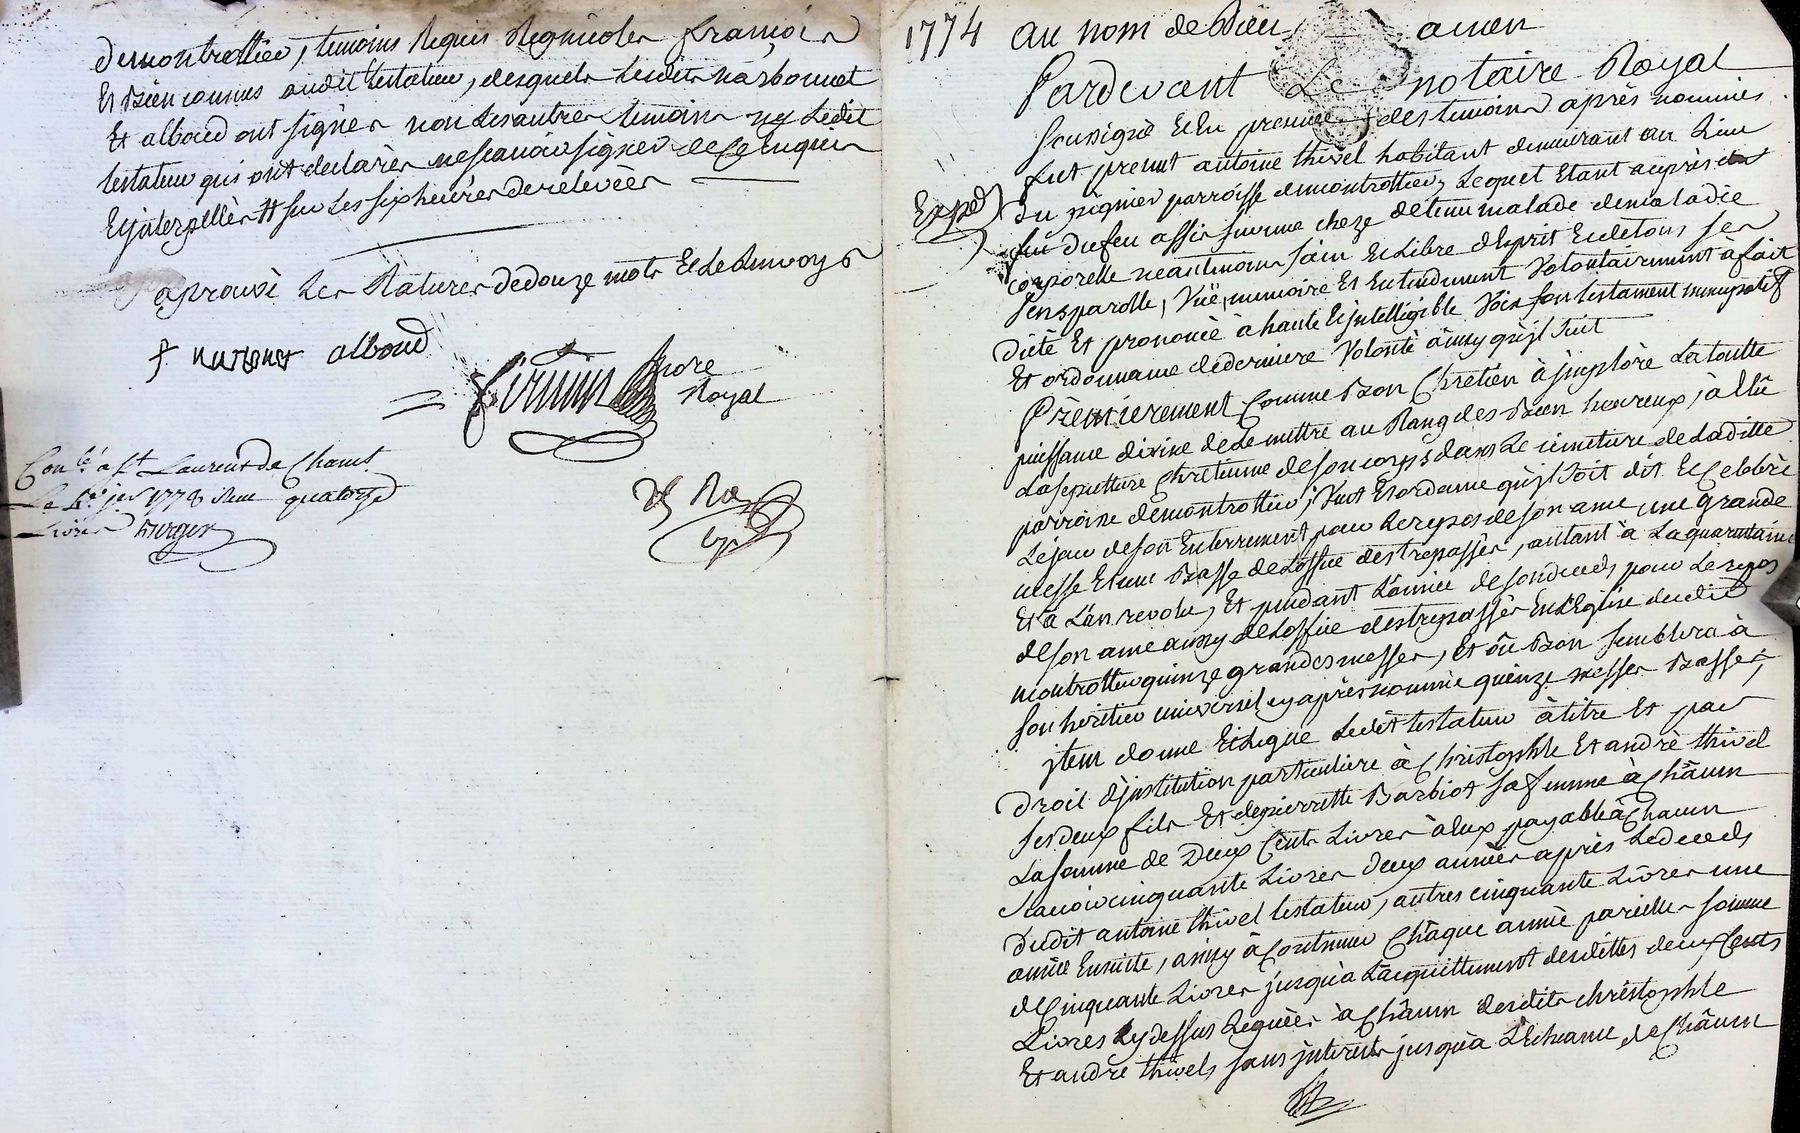 demontrottier, temoins Requis Regnicoles françois
Et Bien connus audit testateur, desquels Lesdits narbonnet
Et alboud ont signés non Les autres temoins ny Ledit
testateur qui ont declarés ne scavoir signer de ce Enquis
Et jnterpellés # sur Les six heures de relevées
aprouvé Les Ratures de douze mots Et Le Renvoy
alboud
nore
Royal
Con.lé a St Laurent de Chamt.
Le jer 1778 Reçu quatorze
Livres
1774 au nom de Dieu amen
Pardevant Le notaire Royal
soussigné Et En presence des temoins après nommés
fut present antoine thivel habitant demeurant au Lieu
Exp.d
du pignier parroisse demontrottier, Lequel Etant auprès
du feu assis sur une cheze detenu malade de maladie
corporelle neantmoins sain Et Libre d'Esprit Et de tous ses
sens parolle, Vuë, memoire Et Entendement Volontairement à fait
dicté Et prononcé à haute Et jntelligible Voix son testament nuncupatif
Et ordonnance de derniere Volonté ainsy qu'jl suit
Prémierement Comme Bon Chretien à jmploré La toutte
puissance divine de Le mettre au Rang des Bien heureux, à Elû
La sepulture Chretienne de son corps dans Le cimetiere de Laditte
parroisse demontrottier, Veut Et ordonne qu'jl soit dit Et Celebré
Le jour de son Enterrement pour Le repos de son ame une grande
messe Et une Basse de L'office des trepassés, autant à La quarantaine
Et à L'an revolu, Et pendant L'année de son deceds pour Le repos
de son ame aussy de L'office des trepassés En L'Eglise dudit
montrottier quinze grandes messes, Et où Bon semblera à
son héritier universel cy après nommé quinze messes Basses,
jtem donne Et Legue Ledit testateur à titre Et par
Droit d'jnstitution particuliere à Christophle Et andré thivel
ses deux fils Et de pierrette Barbiot sa femme à Châcun
La somme de Deux Cents Livres à eux payable à Chacun
Scavoir cinquante Livres deux années après Le deceds
Dudit antoine thivel testateur, autres cinquante Livres une
année Ensuite, ainsy à Continuer Châque année pareilles somme
de Cinquante Livres jusqu'à L'acquittement desdittes deux Cents
Livres Cy dessus Leguées à Châcun desdits christophle
Et andré thivels sans jnterets jusqu'à L'Echeance de Châcun